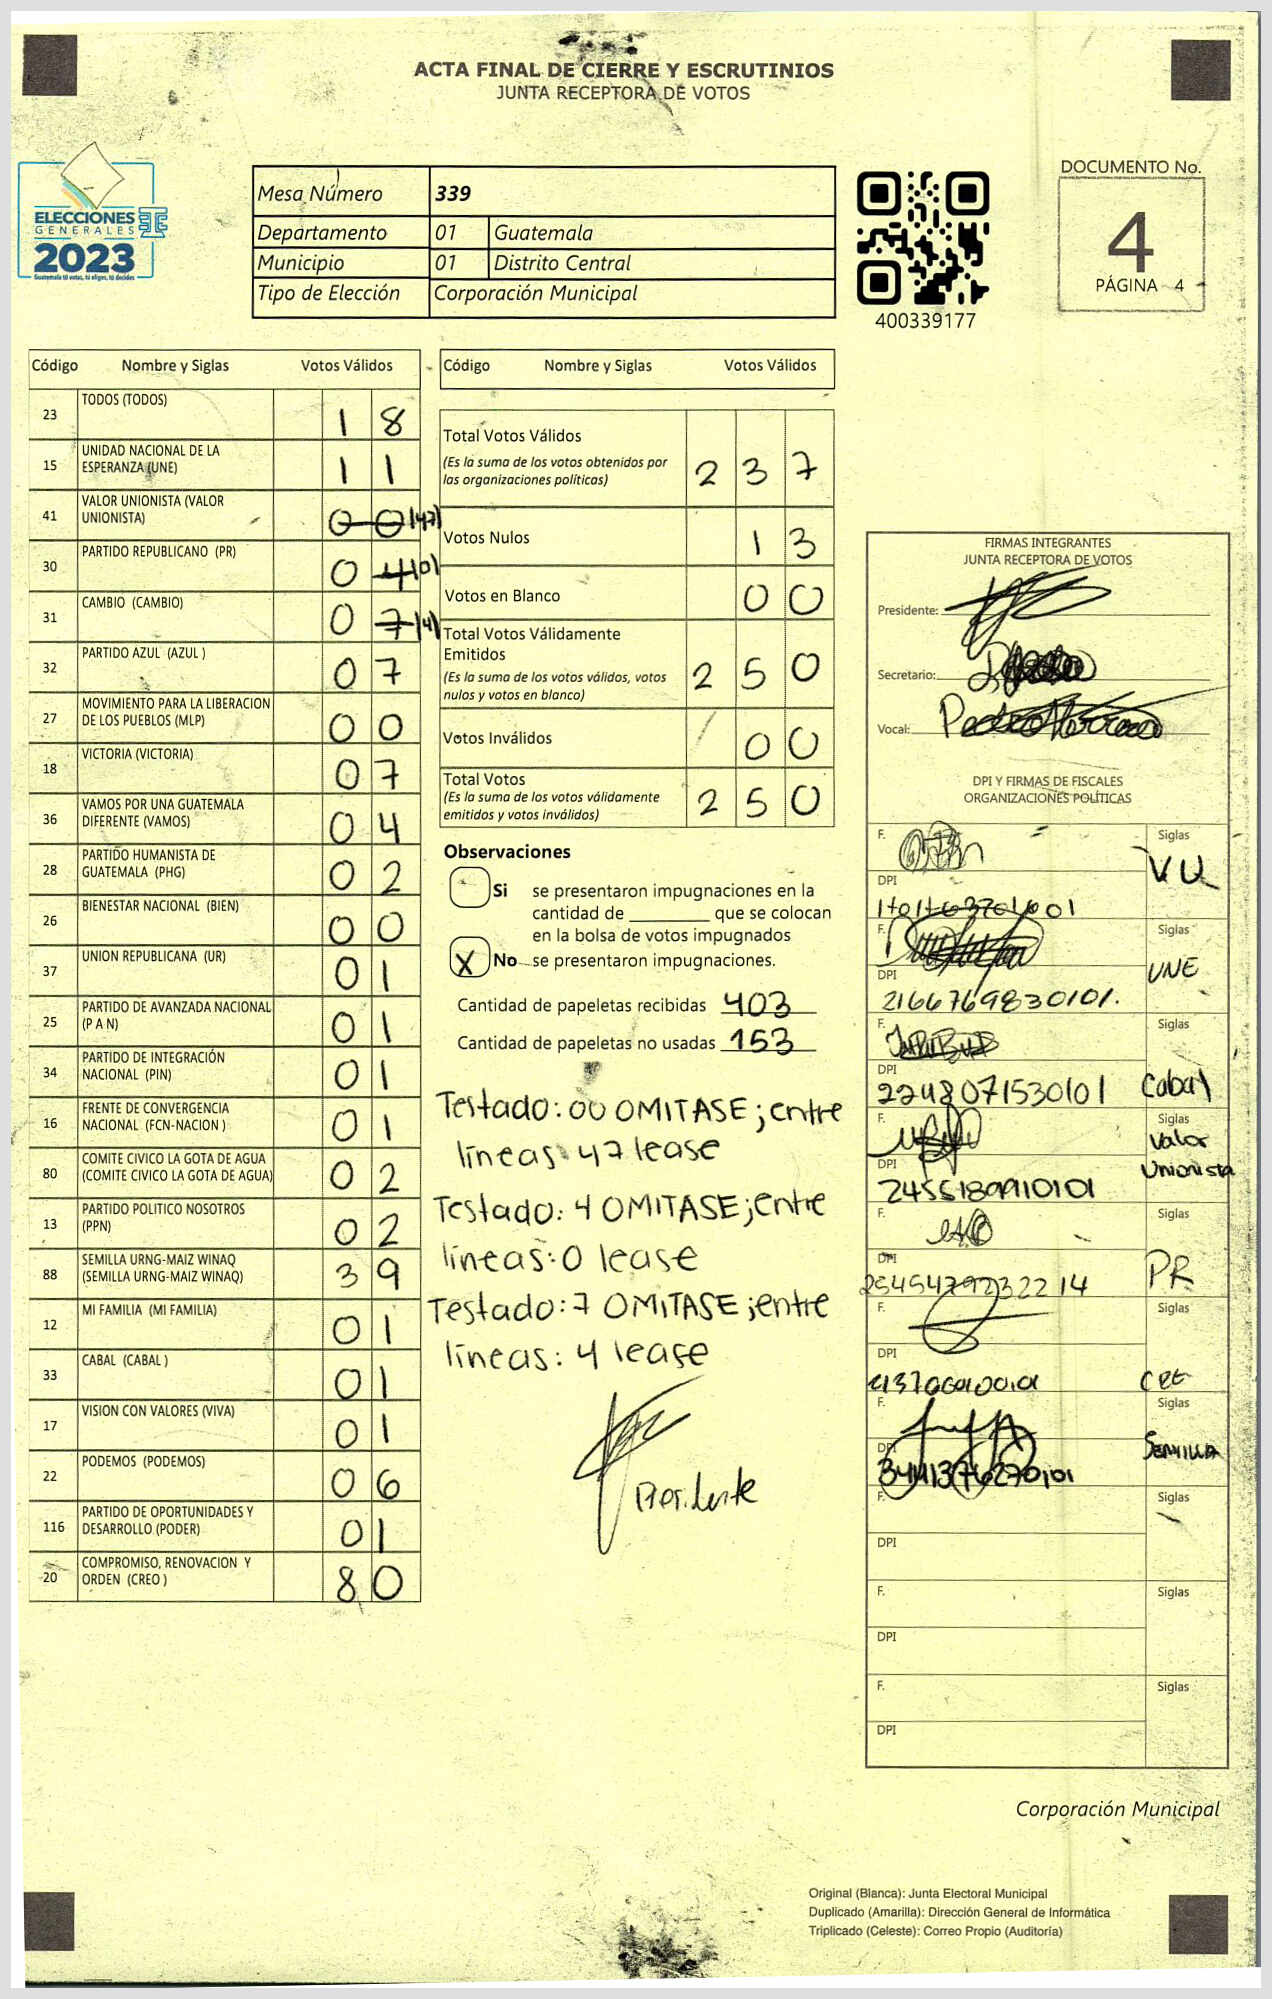 ACTA FINAL DE CIERRE Y ESCRUTINIOS
JUNTA RECEPTORA DE VOTOS
ELECCIONES
GENERALES
2023
Guatemala tú votas, tú eliges, tú decides
Mesa Número 339
Departamento 01 Guatemala
Municipio 01 Distrito Central
Tipo de Elección Corporación Municipal
400339177
DOCUMENTO No.
4
PÁGINA 4
Código Nombre y Siglas Votos Válidos
23 TODOS (TODOS) 1 8
15 UNIDAD NACIONAL DE LA ESPERANZA (UNE) 1 1
41 VALOR UNIONISTA (VALOR UNIONISTA) 0 0 |47|
30 PARTIDO REPUBLICANO (PR) 0 4 |0|
31 CAMBIO (CAMBIO) 0 7 |4|
32 PARTIDO AZUL (AZUL ) 0 7
27 MOVIMIENTO PARA LA LIBERACION DE LOS PUEBLOS (MLP) 0 0
18 VICTORIA (VICTORIA) 0 7
36 VAMOS POR UNA GUATEMALA DIFERENTE (VAMOS) 0 4
28 PARTIDO HUMANISTA DE GUATEMALA (PHG) 0 2
26 BIENESTAR NACIONAL (BIEN) 0 0
37 UNION REPUBLICANA (UR) 0 1
25 PARTIDO DE AVANZADA NACIONAL (P A N) 0 1
34 PARTIDO DE INTEGRACIÓN NACIONAL (PIN) 0 1
16 FRENTE DE CONVERGENCIA NACIONAL (FCN-NACION ) 0 1
80 COMITE CIVICO LA GOTA DE AGUA (COMITE CIVICO LA GOTA DE AGUA) 0 2
13 PARTIDO POLITICO NOSOTROS (PPN) 0 2
88 SEMILLA URNG-MAIZ WINAQ (SEMILLA URNG-MAIZ WINAQ) 3 9
12 MI FAMILIA (MI FAMILIA) 0 1
33 CABAL (CABAL ) 0 1
17 VISION CON VALORES (VIVA) 0 1
22 PODEMOS (PODEMOS) 0 6
116 PARTIDO DE OPORTUNIDADES Y DESARROLLO (PODER) 0 1
20 COMPROMISO, RENOVACION Y ORDEN (CREO ) 8 0
Código Nombre y Siglas Votos Válidos
Total Votos Válidos 2 3 7
(Es la suma de los votos obtenidos por
las organizaciones políticas)
Votos Nulos 1 3
Votos en Blanco 0 0
Total Votos Válidamente
Emitidos 2 5 0
(Es la suma de los votos válidos, votos
nulos y votos en blanco)
Votos Inválidos 0 0
Total Votos 2 5 0
(Es la suma de los votos válidamente
emitidos y votos inválidos)
Observaciones
Si se presentaron impugnaciones en la
cantidad de ________ que se colocan
en la bolsa de votos impugnados
X No se presentaron impugnaciones.
Cantidad de papeletas recibidas 403
Cantidad de papeletas no usadas 153
Testado: 00 OMITASE; entre
líneas 47 lease
Testado: 4 OMITASE; entre
líneas: 0 lease
Testado: 7 OMITASE; entre
líneas: 4 lease
Presidente
FIRMAS INTEGRANTES
JUNTA RECEPTORA DE VOTOS
Presidente:
Secretario:
Vocal:
DPI Y FIRMAS DE FISCALES
ORGANIZACIONES POLÍTICAS
F. Siglas VU
DPI
F. Siglas UNE
DPI 2166769830101.
F. Siglas Cabal
DPI 2248071530101
F. Siglas Valor Unionista
DPI 2455189910101
F. Siglas PR
DPI
F. Siglas
DPI
F. Siglas SEMILLA
DPI
F. Siglas
DPI
F. Siglas
DPI
F. Siglas
DPI
Corporación Municipal
Original (Blanca): Junta Electoral Municipal
Duplicado (Amarilla): Dirección General de Informática
Triplicado (Celeste): Correo Propio (Auditoría)